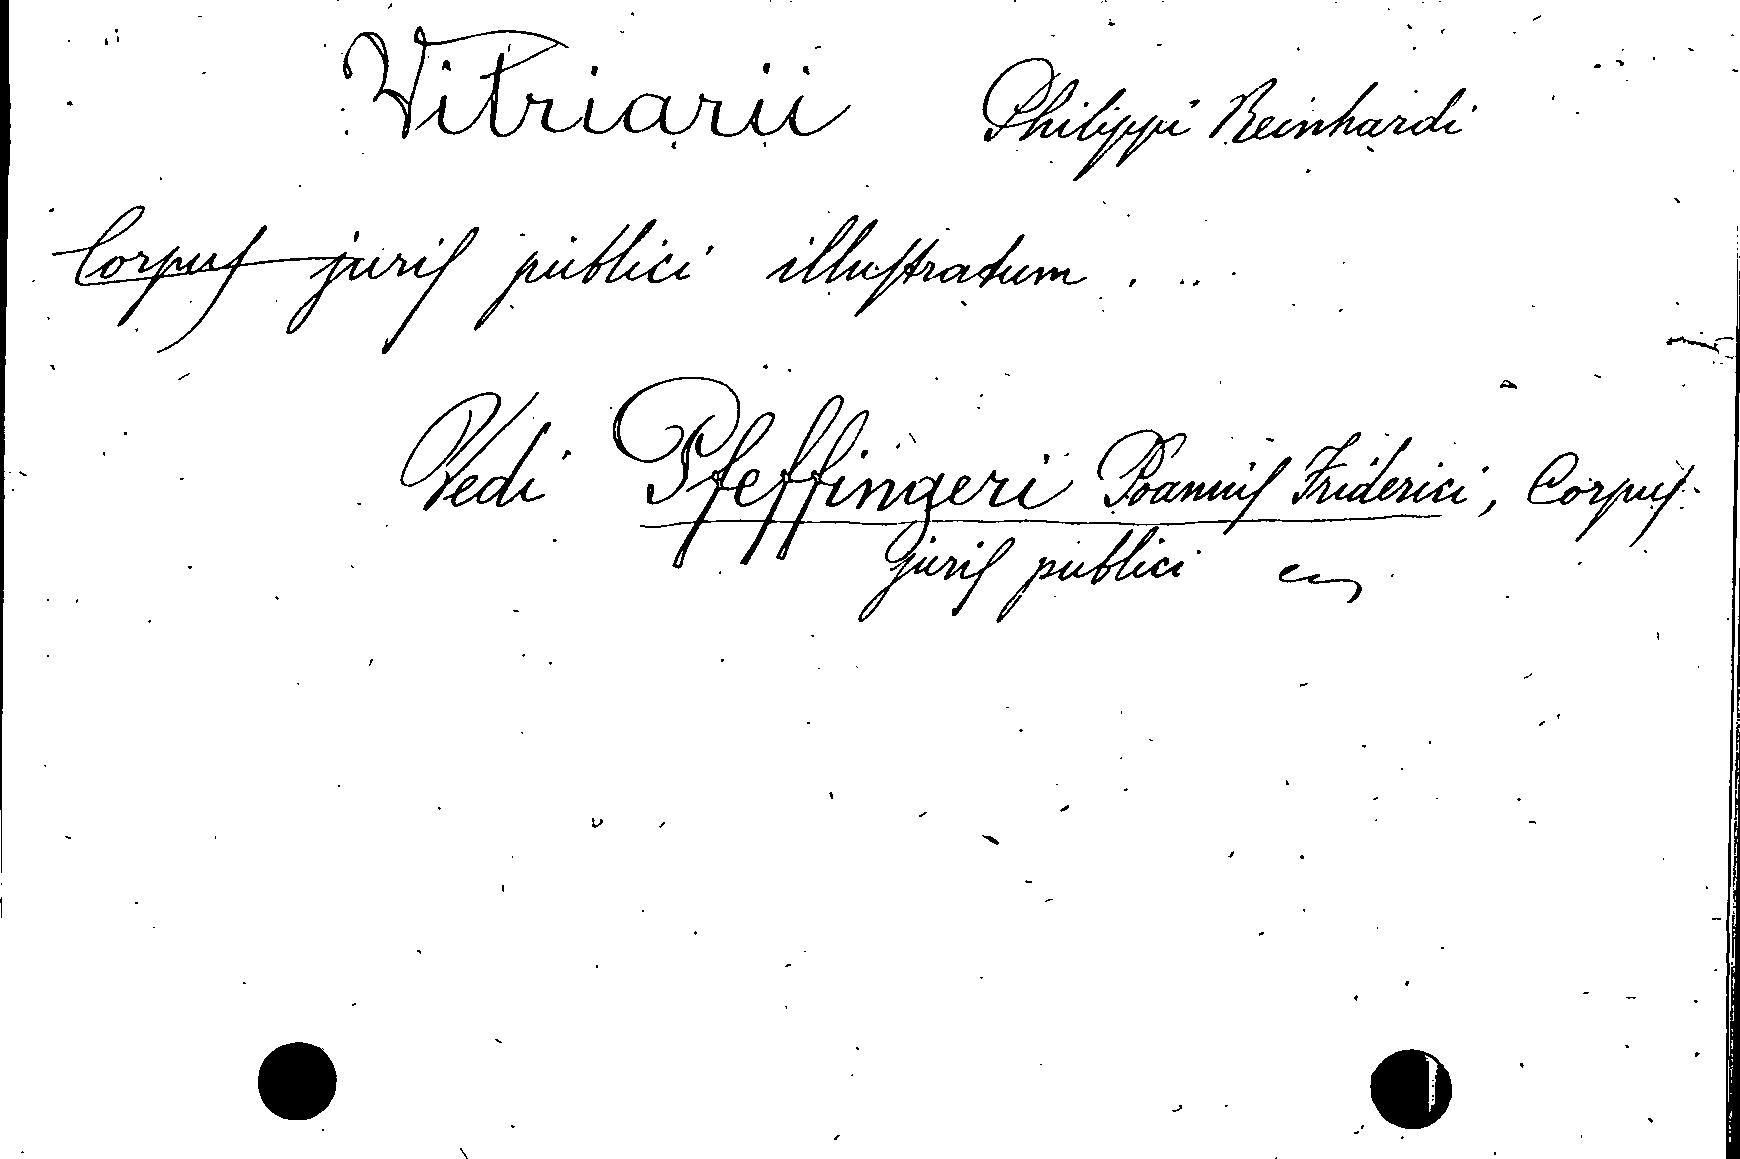 Vitriarii Philippi Reinhardi
Corpuſ juriſ publici illuſtratum . ..
Vedi Pfeffingeri Joanniſ Friderici, Corpuſ
juriſ publici